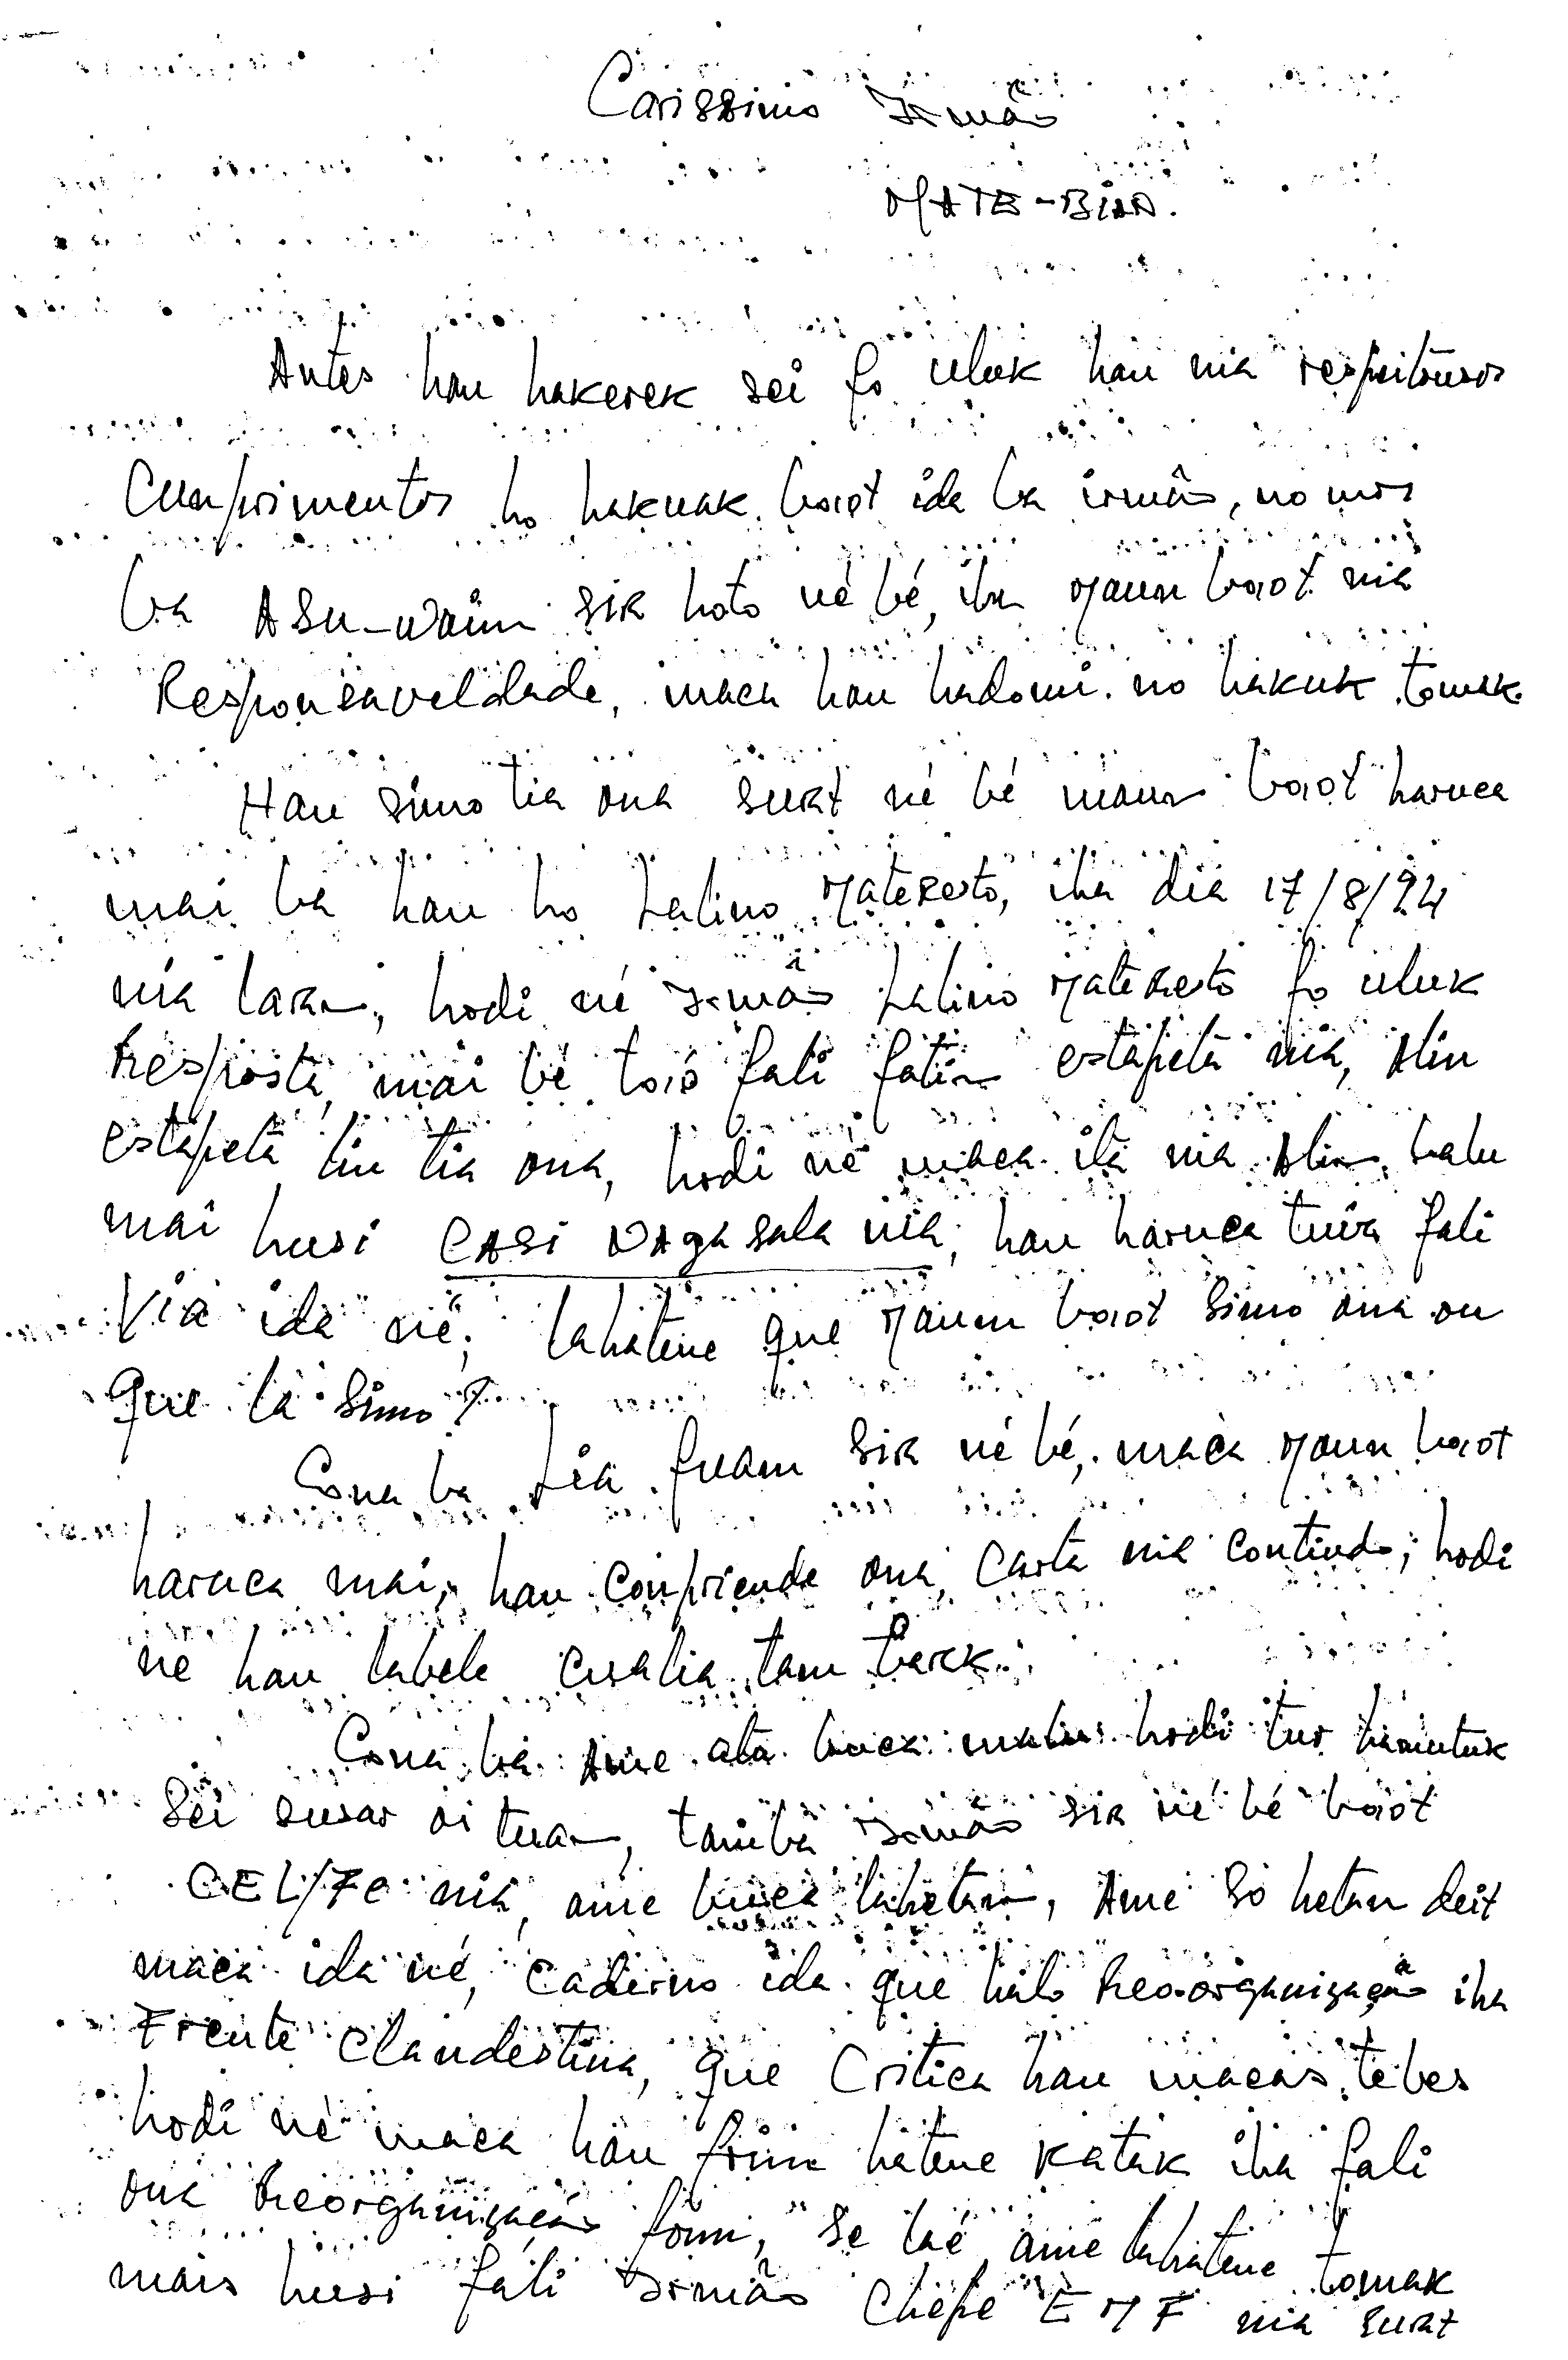 Carissimo Irmão
MATE-BIAN.
Antes hau hakerek sei fo uluk hau nia respeitosos
Cumprimentos ho hakuak boot ida ba irmão, no mos
ba ASU-Wain sira hoto né bé, iha Maun boot nia
Responsaveldade, maca hau hadomi no hakuak tomak.
Hau simo tia ona surat né bé maun boot haruca
mai ba hau ho Lalino Materesto, iha dia 17/8/94
nia laran, hodi né Irmão Lalino Materesto fo uluk
Resposta, mai bé toió fali fatin estapeta nia, Alin
estapeta liu tia ona, hodi né maca ita nia Alin balu
mai husi CASI NAga sala nia, hau haruca tuir fali
Via ida né, lahatene que Maun boot Simo ona ou
que la simo?
Cona ba Lia fuam Sira né bé, maca Maun boot
haruca mai, hau compriende ona, Carta nia contiudo; hodi
ne hau labele cualia tam barak.
Cona ba Ame ata buca malu hodi tur hamutuk
Sei susar oi tuan, tamba Irmão sira né bé boot
CEL/FC nia, ame buca lahetan, Ame Só hetan deit
maca ida né, Caderno ida que halo Reoorganização iha
Frente Clandestina, que Critica hau macas tebes
hodi né maca hau foin hatene Katak iha fali
ona Reorganização foun, se laé ame lahatene tomak
mais husi fali Irmão Chefe EMF nia surat